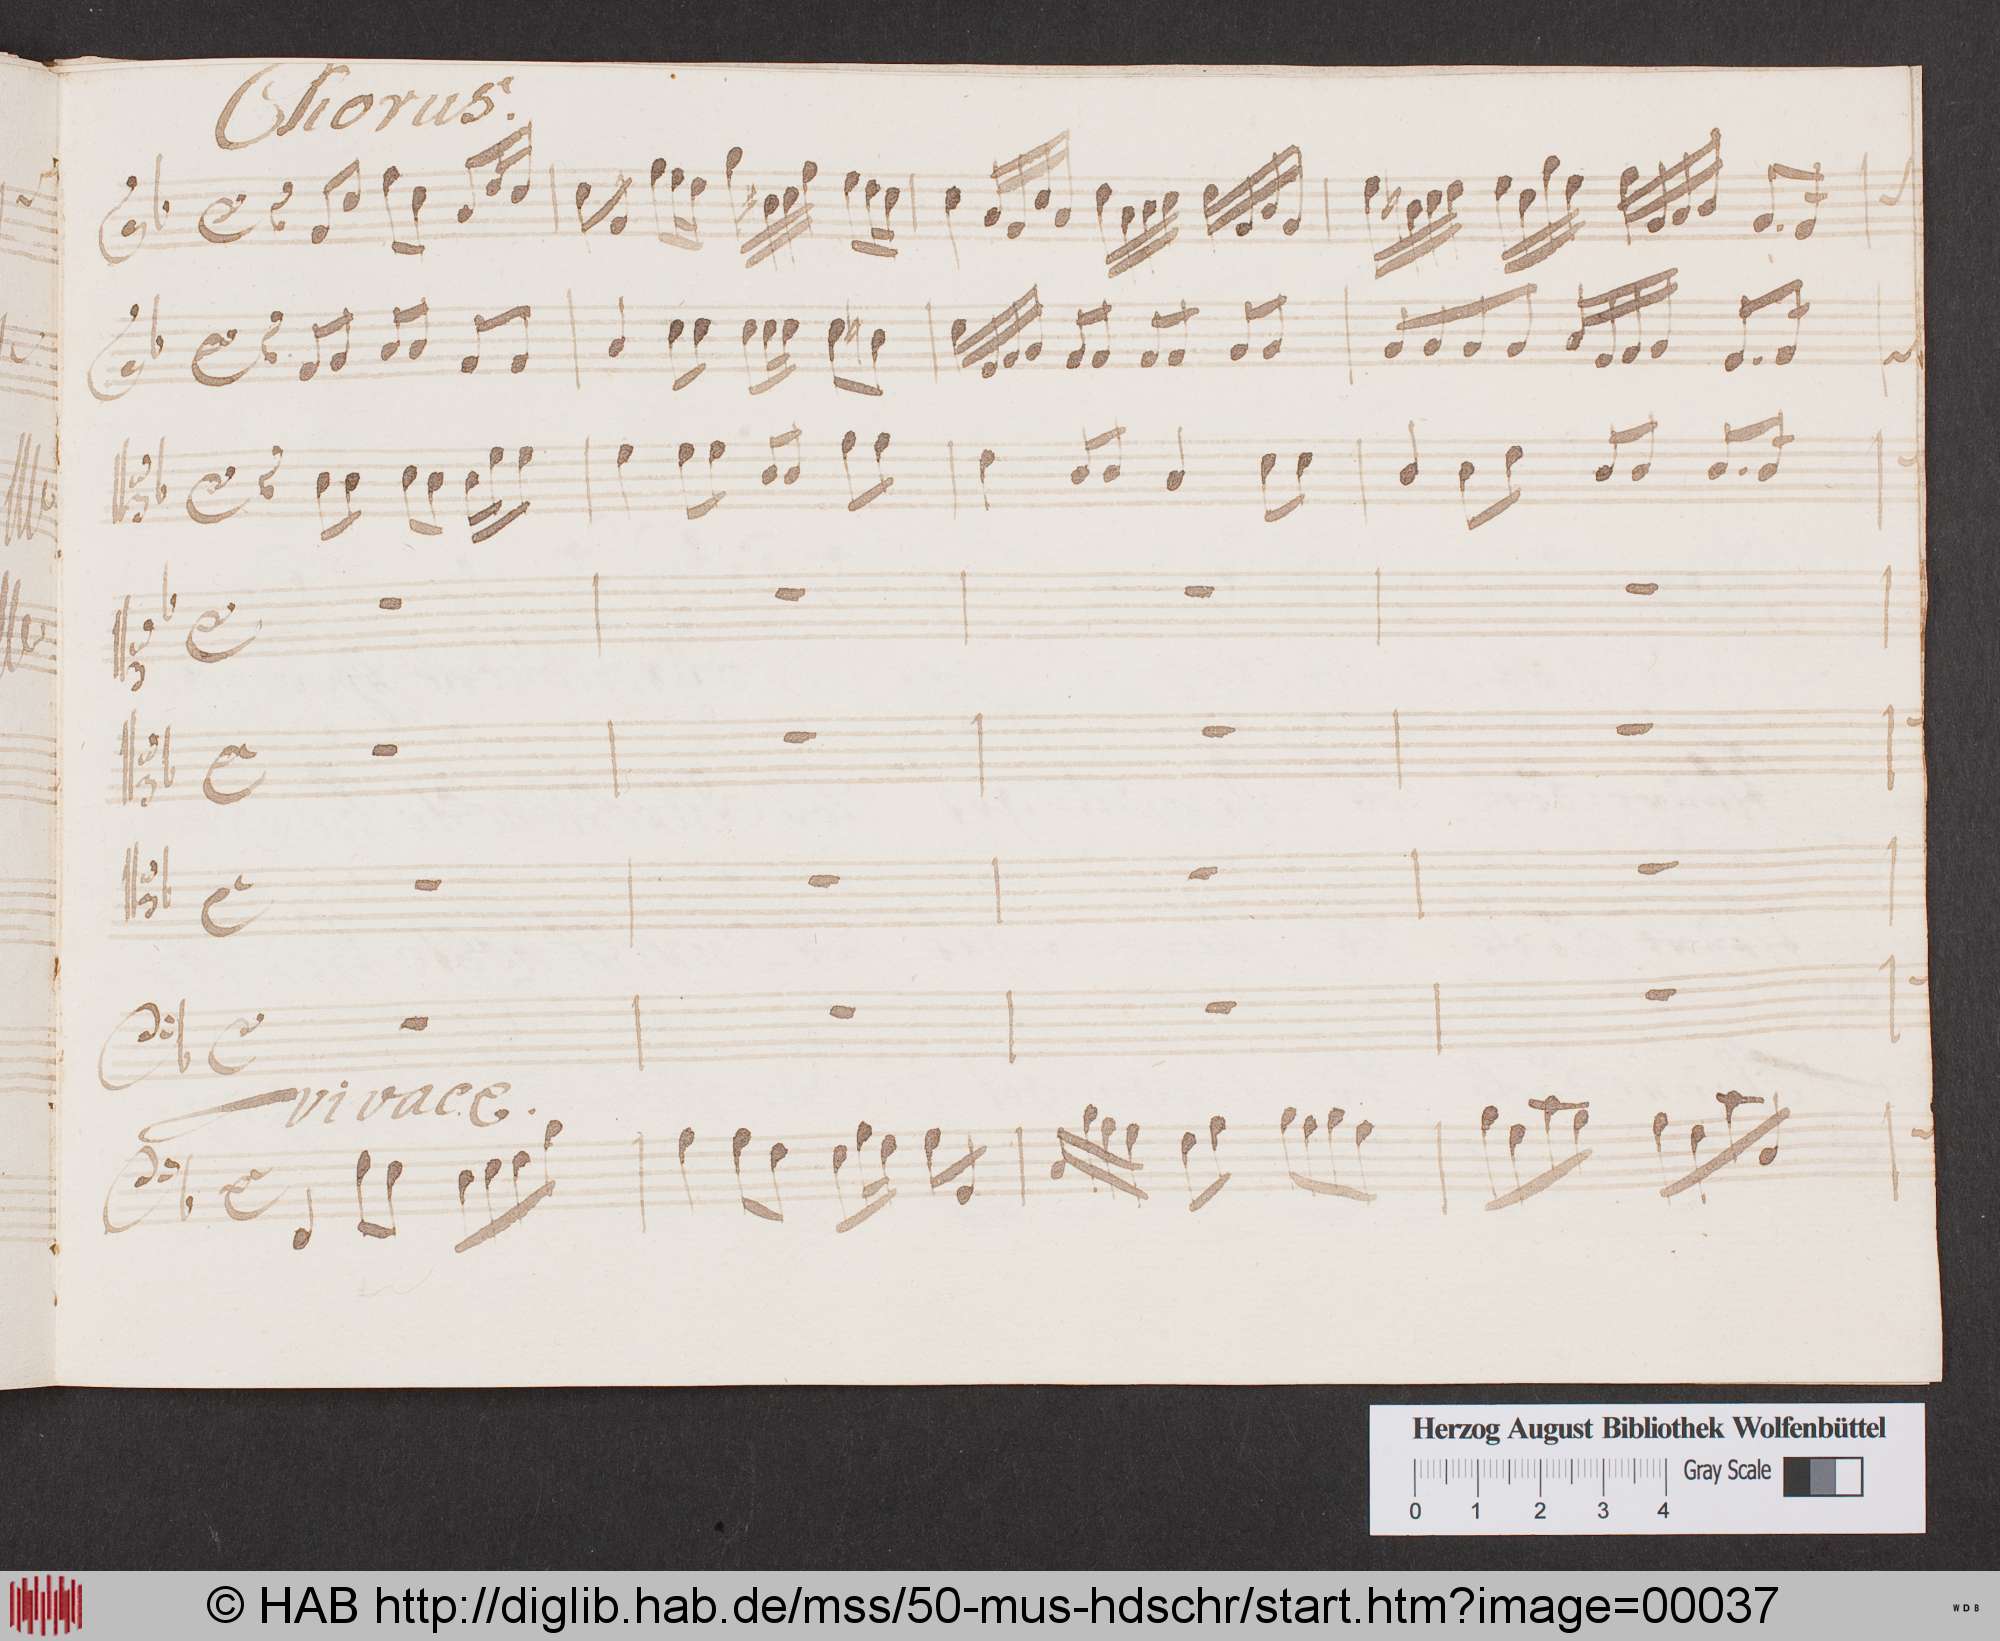 Chorus.
vivace.
Herzog August Bibliothek Wolfenbüttel
Gray Scale
0 1 2 3 4
© HAB http://diglib.hab.de/mss/50-mus-hdschr/start.htm?image=00037
WDB